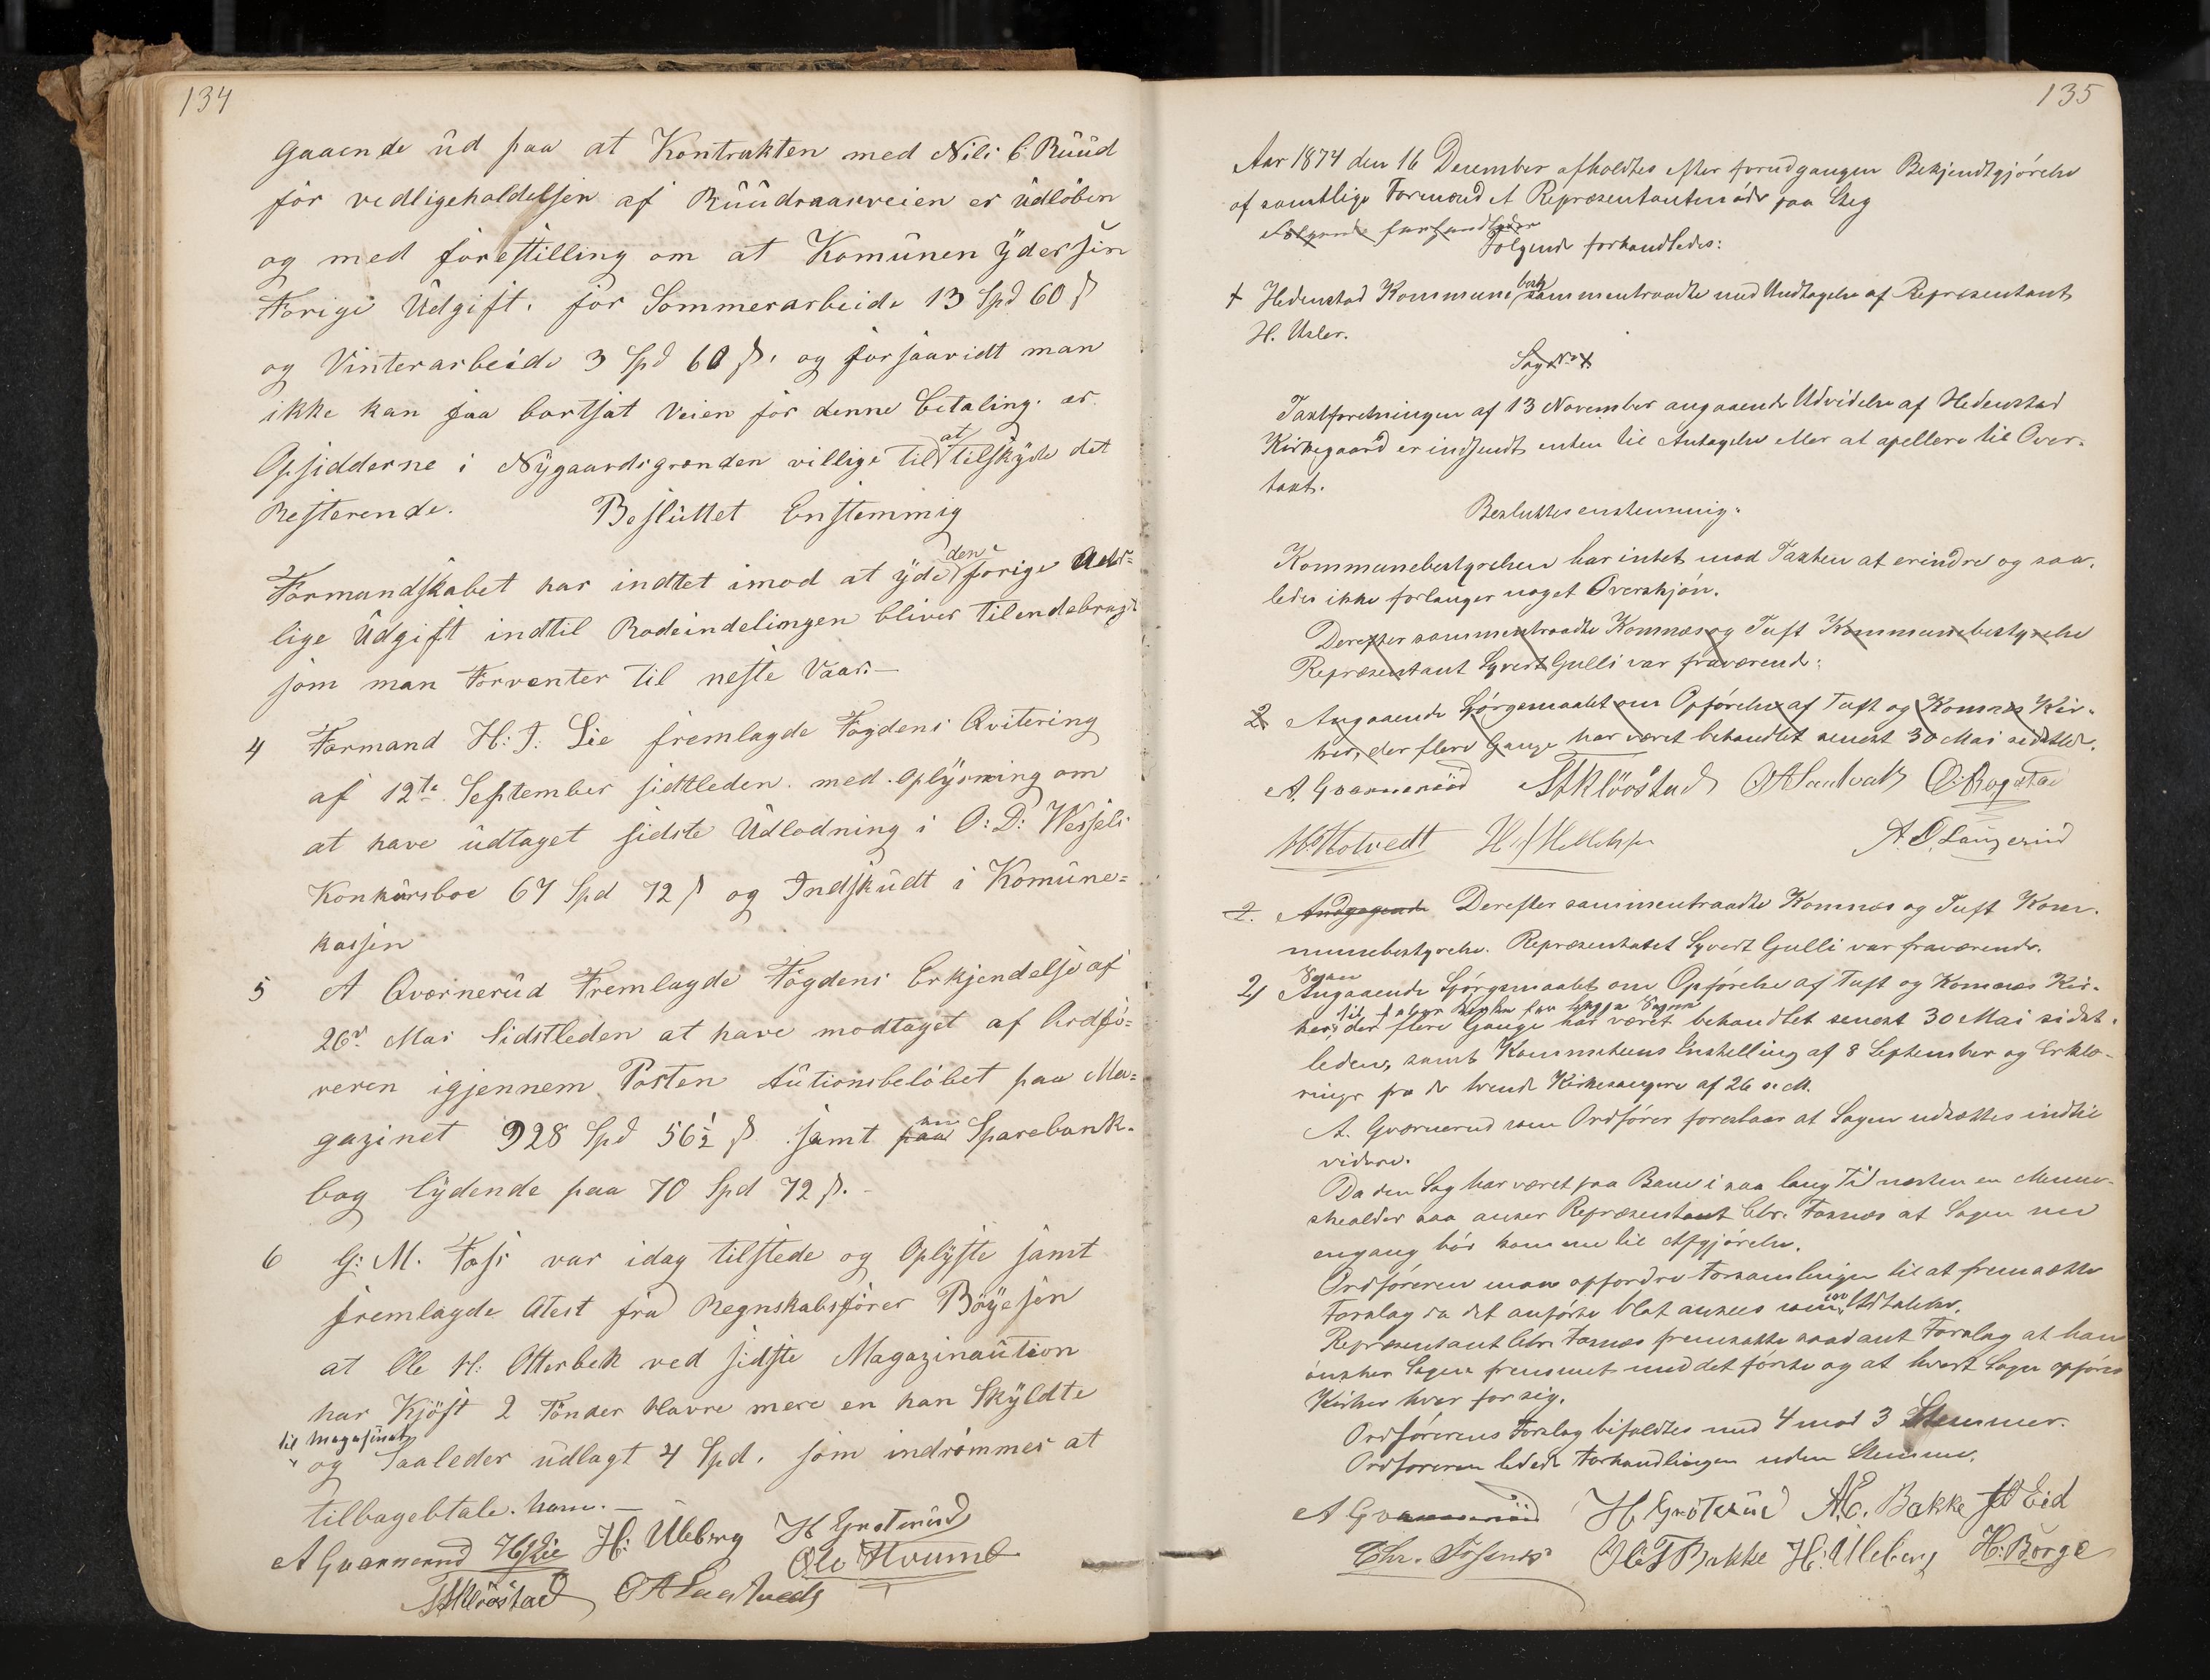 134
gaaende ûd paa at Kontrakten med Nils C. Rûûd
for vedligeholdelsen af Rûûdraasveien er ûdløben
og med forestilling om at Komûnen ÿder sin
Forige Ûdgift. for Sommerarbeide 13 Spd 60 ß
og Vinterarbeide 3 Spd 60 ß. og forsaavidt man
ikke kan faa bortsat Veien for denne betaling. er
Opsidderne i Nÿgaardsgrenden villige til at tilskÿde det
Resterende. Beslûttet Enstemmig
Formandskabet har indtet imod at ÿde den forige Aar=
lige Ûdgift indtil Rodeindelingen bliver tilendebragt
som man Forventer til neste Vaar.—
4 Formand H: J: Lie fremlagde Fogdens Qvitering
af 12te September sidtleden. med. oplÿsning om
at have ûdtaget sidste Ûdlodning i O: D: Wessels
Konkûrsboe 67 Spd 72 ß og Indskûdt i Komûne=
kassen
5 A Qvernerûd Fremlagde Fogdens Erkjendelse af
26d Mai Sidstleden at have modtaget af Ordfø=
reren igjennem Posten Aûtionsbeløbet paa Ma=
gazinet 928 Spd 56½ ß samt paa Sparebank-
bog lÿdende paa 70 Spd 72 ß.-
6 G: M. Foss var idag tilstede og Oplÿste samt
fremlagde Atest fra Regnskabsfører Böÿesen
at Ole H: Otterbek ved sidste Magazinaûtion
har Kjöft 2 Tönder Havre mere en han Skÿldte
til Magasinet
og Saaleder ûdlagt 4 Spd. som indrömmes at
tilbagebtale. ham.—
A Gvarnerud HJLie H: Ûleberg H Grøterûd
Ole Kvume
135
Aar 1874 den 16 December afholdtes efter forudgangen Bekjendtgjørelse
af samtlige Formænd et Repræsentantmøde paa Steg
Følgende forhandledes
Følgende forhandledes:
Hedenstad Kommunebest sammentraadte med Undtagelse af Repræsentant
H. Usler.
Sag No 1.
Taxtforretningen af 13 November angaaende Udvidelse af Hedenstad
Kirkegaard er indsendt enten til Antagelse eller at apellere til Over-
taxt.
Besluttes enstemmig:
Kommunebestyrelsen har intet mod Taxten at erindre og saa-
ledes ikke forlanger noget Overskjøn.
Derefter sammentraadte Komnæs og Tuft Kommunebestyrelse
Repræsentant Syvert Gulli var fraværende:
2 Angaaende Spørgsmaalet om Opførelse af Tuft og Komnæs Kir-
ker, der flere Gange har været behandlet senest 30 Mai sidstled.
A. Gvarnerûd StKlööstad O. Rogstad
H Holvedt A. O. Langerûd
2. Derefter sammentraadte Komnæs og Tuft Kom-
munebestyrelse. Repræsentatet Syvert Gulli var fraværende.
2) Sagen
Angaaende Spørgsmaalet om Opførelse af Tuft og Komnæs Kir-
ker, der flere Gange har været behandlet senest 30 Mai sidst-
leden, samt Kommiteens Instelling af 8 September og Erklæ-
ringe fra de tvende Kirkesangere af 26 s. M.
A. Gvarnerud som Ordfører foreslaar at Sagen udsættes indtil
videre.
Da den Sag har været paa Bane i saa lang Tid næsten en Menne-
skealder saa anser Repræsentant Chr. Fosnæs at Sagen nu
engang bør komme til Afgjørelse.
Ordføreren maa opfordre Forsamlingen til at fremsætte
Forslag da det anførte blot ansees som en Udtalelse.
Repræsentant Chr. Fosnæs fremsatte saadant Forslag at han
ønsker Sagen fremmet med det første og at hvert Sogn opfører
Kirker hver for sig.
Ordførerens Forslag bifaldtes med 4 mod 3 Stemmer.
Ordføreren ledede Forhandlingen uden Stemme.
A Gvarnerûd H. Grøterûd A.C. Bakke Eid
Chr. Fosnæs Ole T Bakke H: Ûleberg H: Borge